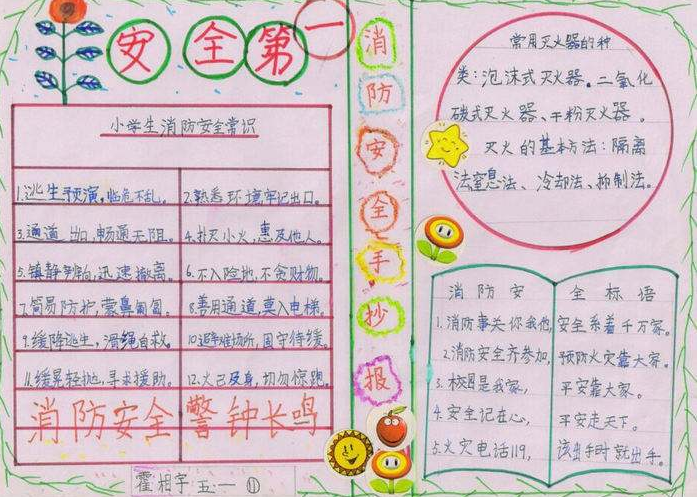 安全第一
小学生消防安全常识
1.逃生预演,临危不乱。
2.熟悉环境牢记出口。
3.通道出口,畅通无阻。
4.扑灭小火,惠及他人。
5.镇静辨向,迅速撤离。
6.不入险地,不贪财物。
7.简易防护,蒙鼻匍匐。
8.善用通道,莫入电梯。
9.缓降逃生,滑绳自救。
10.避难场所,固守待援。
11.缓晃轻抛,寻求援助。
12.火已及身,切勿惊跑。
消防安全 警钟长鸣
霍相宇 五一 ⑪
消防安全手抄报
常用灭火器的种
类:泡沫式灭火器。二氧化
碳式灭火器、干粉灭火器。
灭火的基本方法:隔离
法窒息法、冷却法、抑制法。
消防安全标语
1.消防事关你我他,安全系着千万家。
2.消防安全齐参加,预防火灾靠大家。
3.校园是我家,平安靠大家。
4.安全记在心,平安走天下。
5.火灾电话119,该出手时就出手。